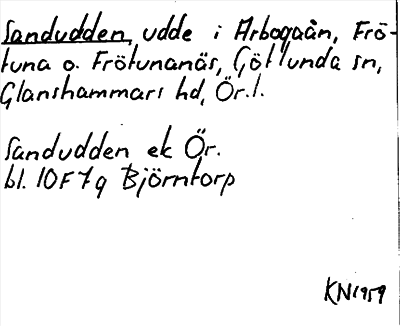 Sandudden, udde i Arbogaån, Frö-
tuna o. Frötunanäs, Götlunda sn,
Glanshammars hd, Ör.l.
Sandudden ek Ör.
bl. 10F7g Björntorp
KN1959